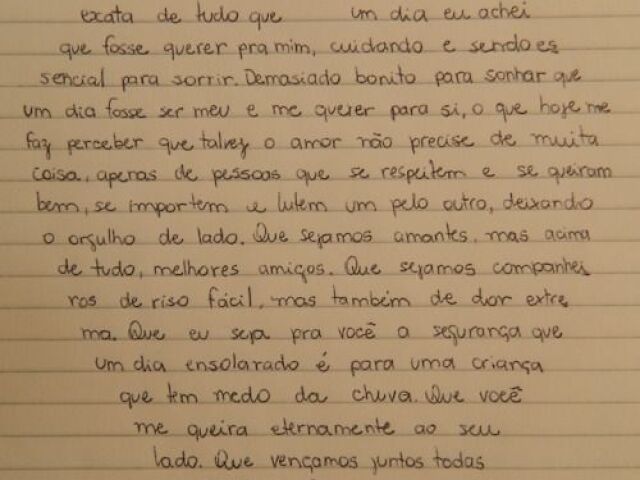 exata de tudo que um dia eu achei
que fosse querer pra mim, cuidando e sendo es
sencial para sorrir. Demasiado bonito para sonhar que
um dia fosse ser meu e me querer para si, o que hoje me
faz perceber que talvez o amor não precise de muita
coisa, apenas de pessoas que se respeitem e se queiram
bem, se importem e lutem um pelo outro, deixando
o orgulho de lado. Que sejamos amantes, mas acima
de tudo, melhores amigos. Que sejamos companhei
ros de riso fácil, mas também de dor extre
ma. Que eu seja pra você a segurança que
um dia ensolarado é para uma criança
que tem medo da chuva. Que você
me queira eternamente ao seu
lado. Que vençamos juntos todas